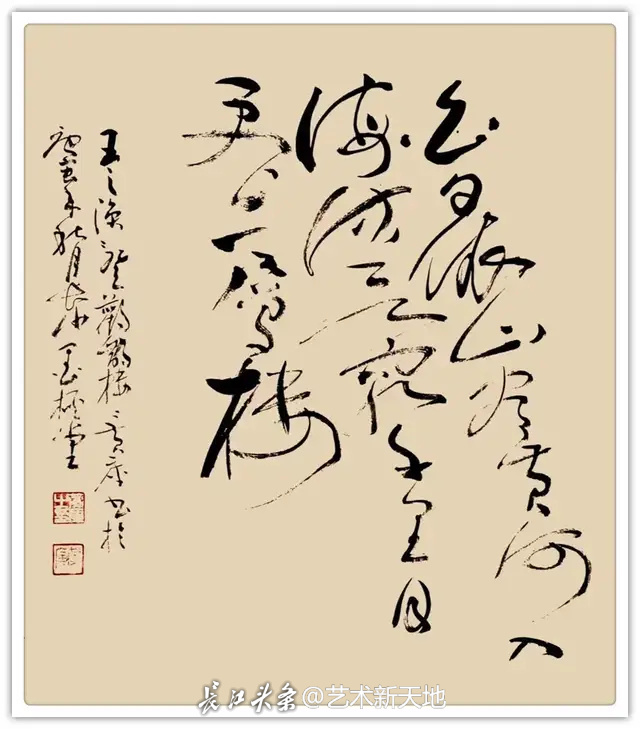 白日依山尽黄河入
海流欲穷千里目
更上一层楼
王之涣登鹳雀楼 书于
庚寅年秋月
长江头条@艺术新天地